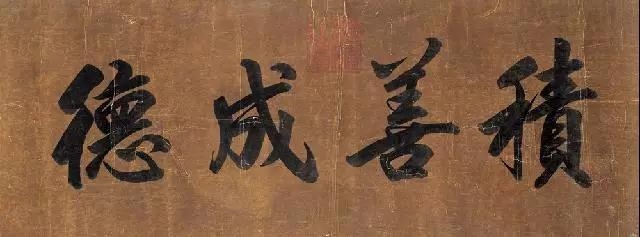 積善成德